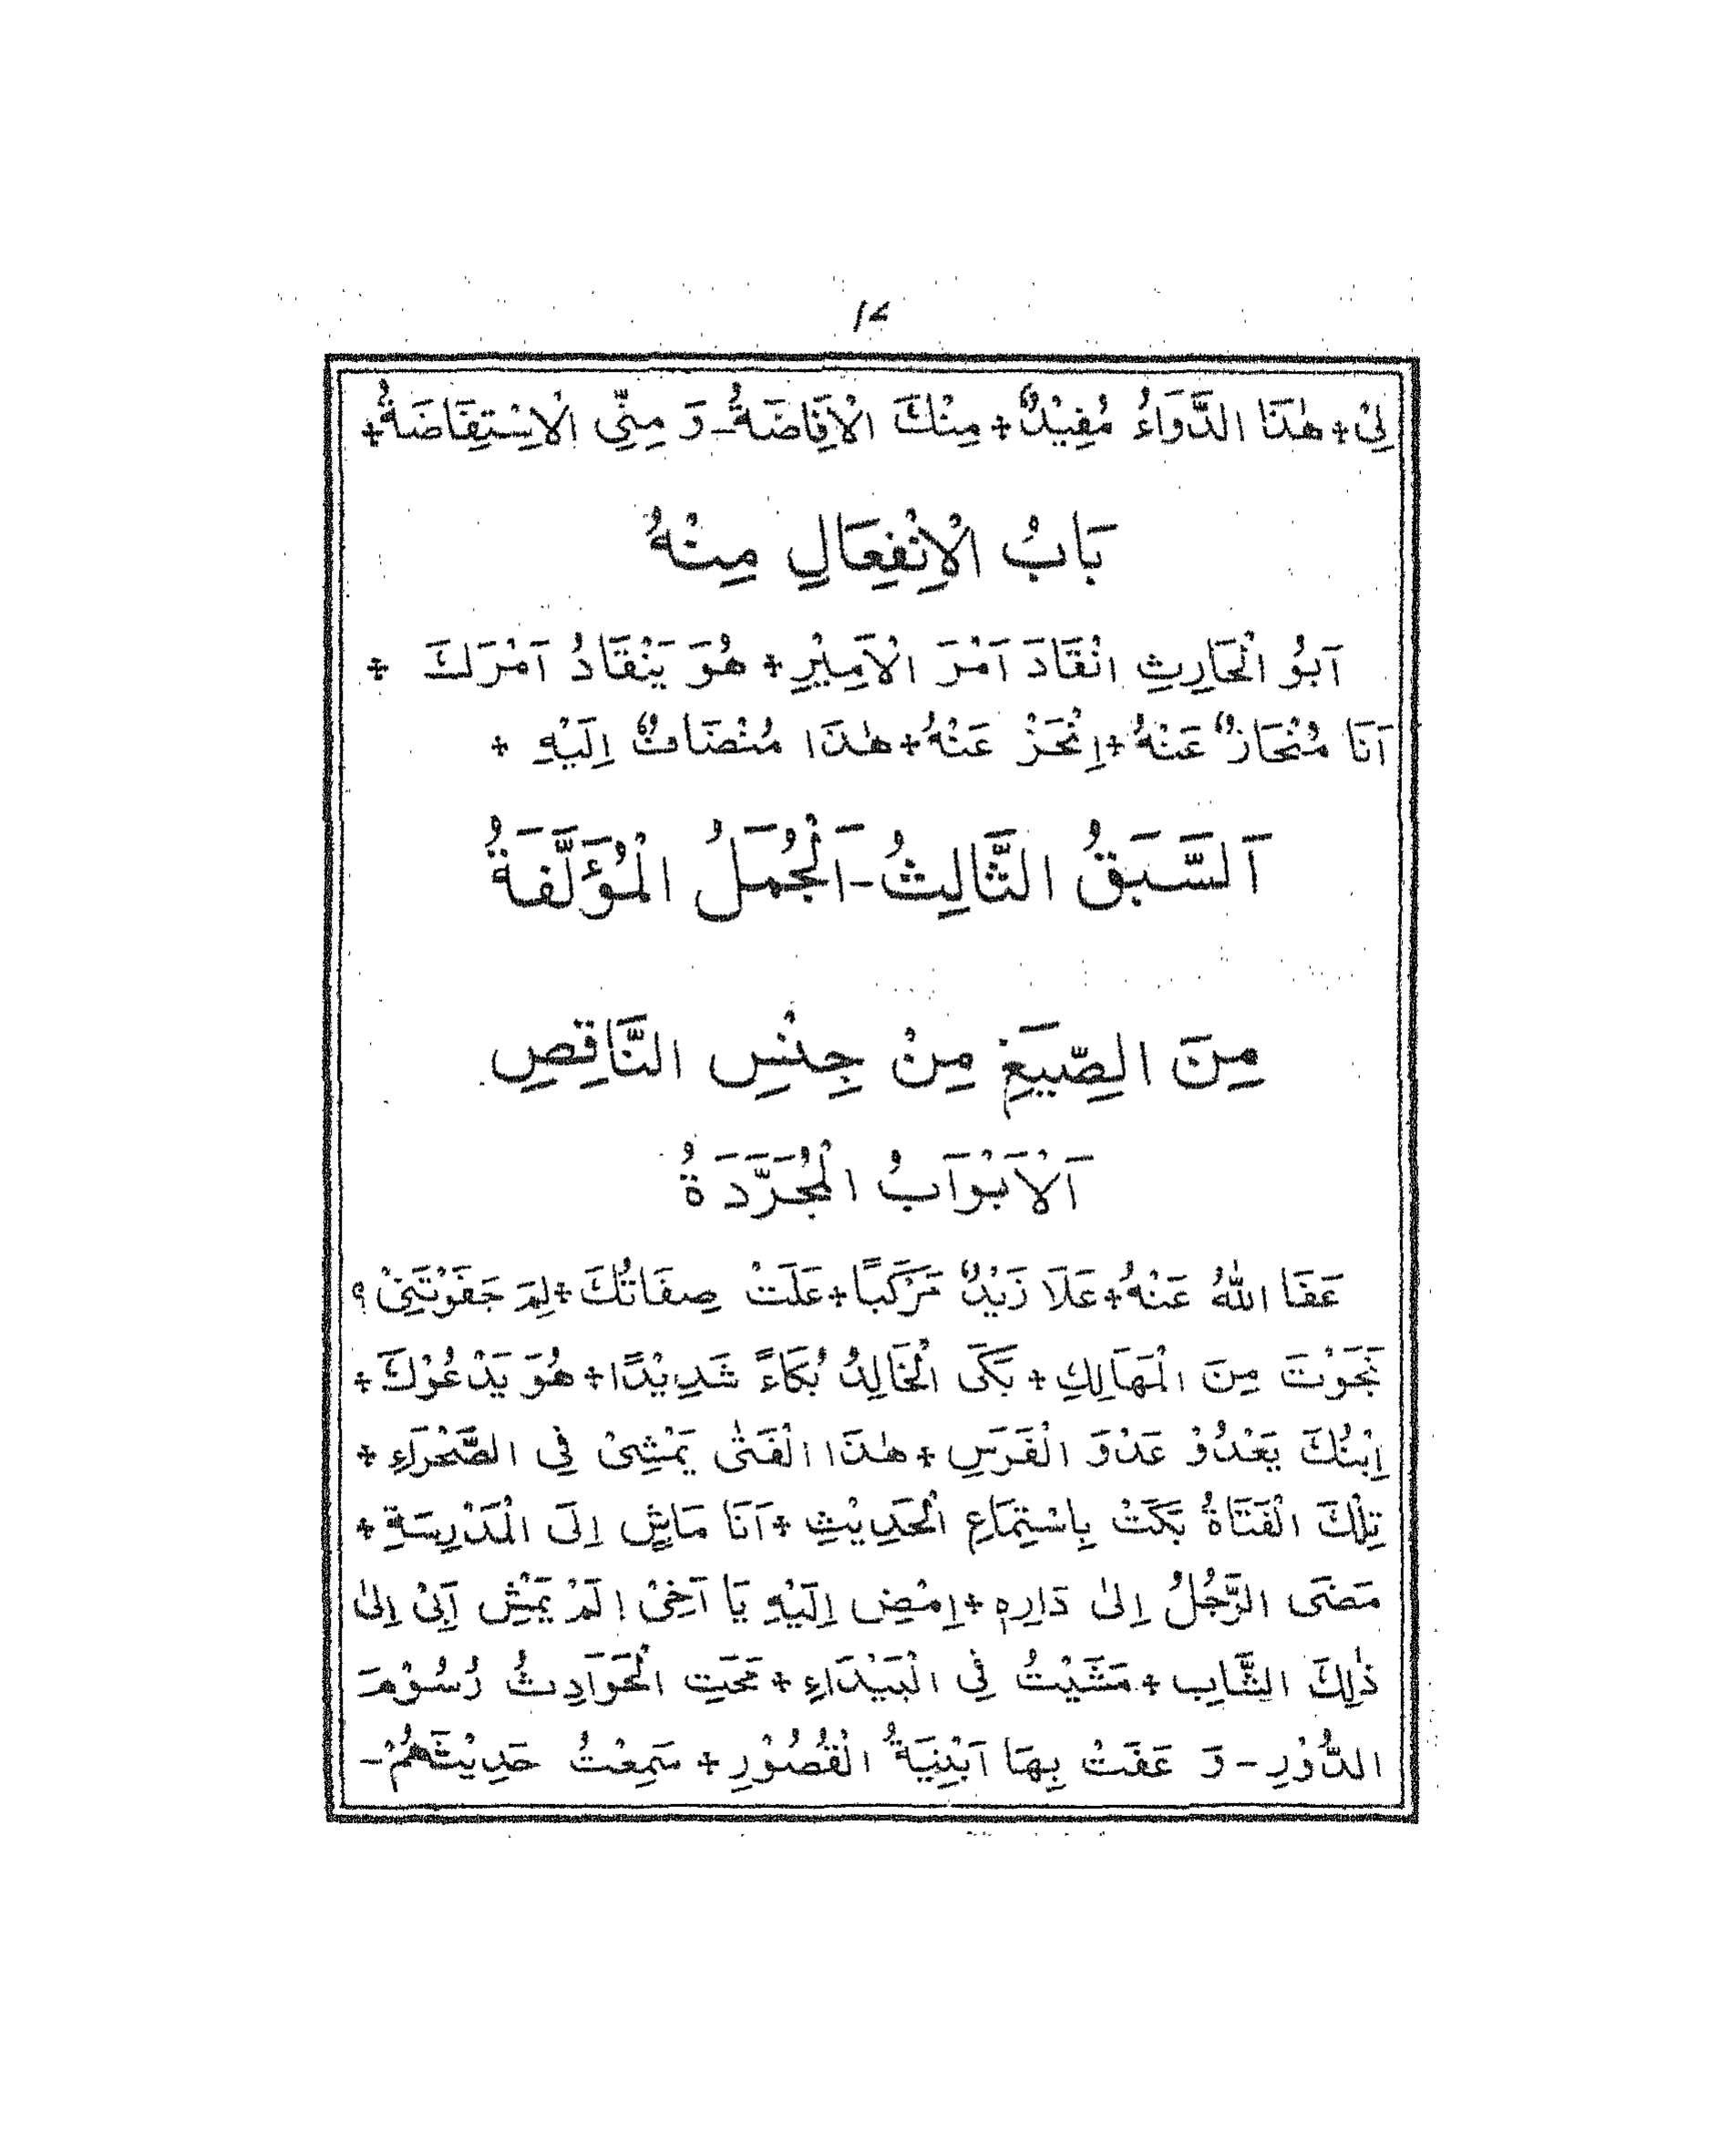 ۱۷
لِیْ + هٰذَا الدَّوَاءُ مُفِیْدٌ + مِنْكَ الْاِفَاضَةُ - وَ مِنِّی الْاِسْتِفَاضَةُ +
بَابُ الْاِنْفِعَالِ مِنْهُ
اَبُو الْحَارِثِ انْقَادَ اَمْرَ الْاَمِیْرِ + هُوَ یَنْقَادُ اَمْرَكَ +
اَنَا مُنْحَازٌ عَنْهُ + اِنْحَزْ عَنْهُ + هٰذَا مُنْضَافٌ اِلَیْهِ +
اَلسَّبَقُ الثَّالِثُ - اَلْجُمَلُ الْمُؤَلَّفَةُ
مِنَ الصِّیَغِ مِنْ جِنْسِ النَّاقِصِ
اَلْاَبْوَابُ الْمُجَرَّدَةُ
عَفَا اللّٰهُ عَنْهُ + عَلَا زَیْدٌ مَرْكَبًا + عَلَتْ صِفَاتُكَ + لِمَ جَفَوْتَنِیْ ؟
نَجَوْتَ مِنَ الْمَهَالِكِ + بَكَی الْخَالِدُ بُكَاءً شَدِیْدًا + هُوَ یَدْعُوْكَ +
اِبْنُكَ یَعْدُوْ عَدْوَ الْفَرَسِ + هٰذَا الْفَتٰی یَمْشِیْ فِی الصَّحْرَاءِ +
تِلْكَ الْفَتَاةُ بَكَتْ بِاسْتِمَاعِ الْحَدِیْثِ + اَنَا مَاشٍ اِلَی الْمَدْرِسَةِ +
مَضَی الرَّجُلُ اِلیٰ دَارِهٖ + اِمْضِ اِلَیْهِ یَا اَخِیْ ! لَمْ یَمْشِ اَبِیْ اِلیٰ
ذٰلِكَ الشَّابِ + مَشَیْتُ فِی الْبَیْدَاءِ + مَحَتِ الْحَوَادِثُ رُسُوْمَ
الدُّوْرِ - وَ عَفَتْ بِهَا اَبْنِیَةُ الْقُصُوْرِ + سَمِعْتُ حَدِیْثَهُمْ -